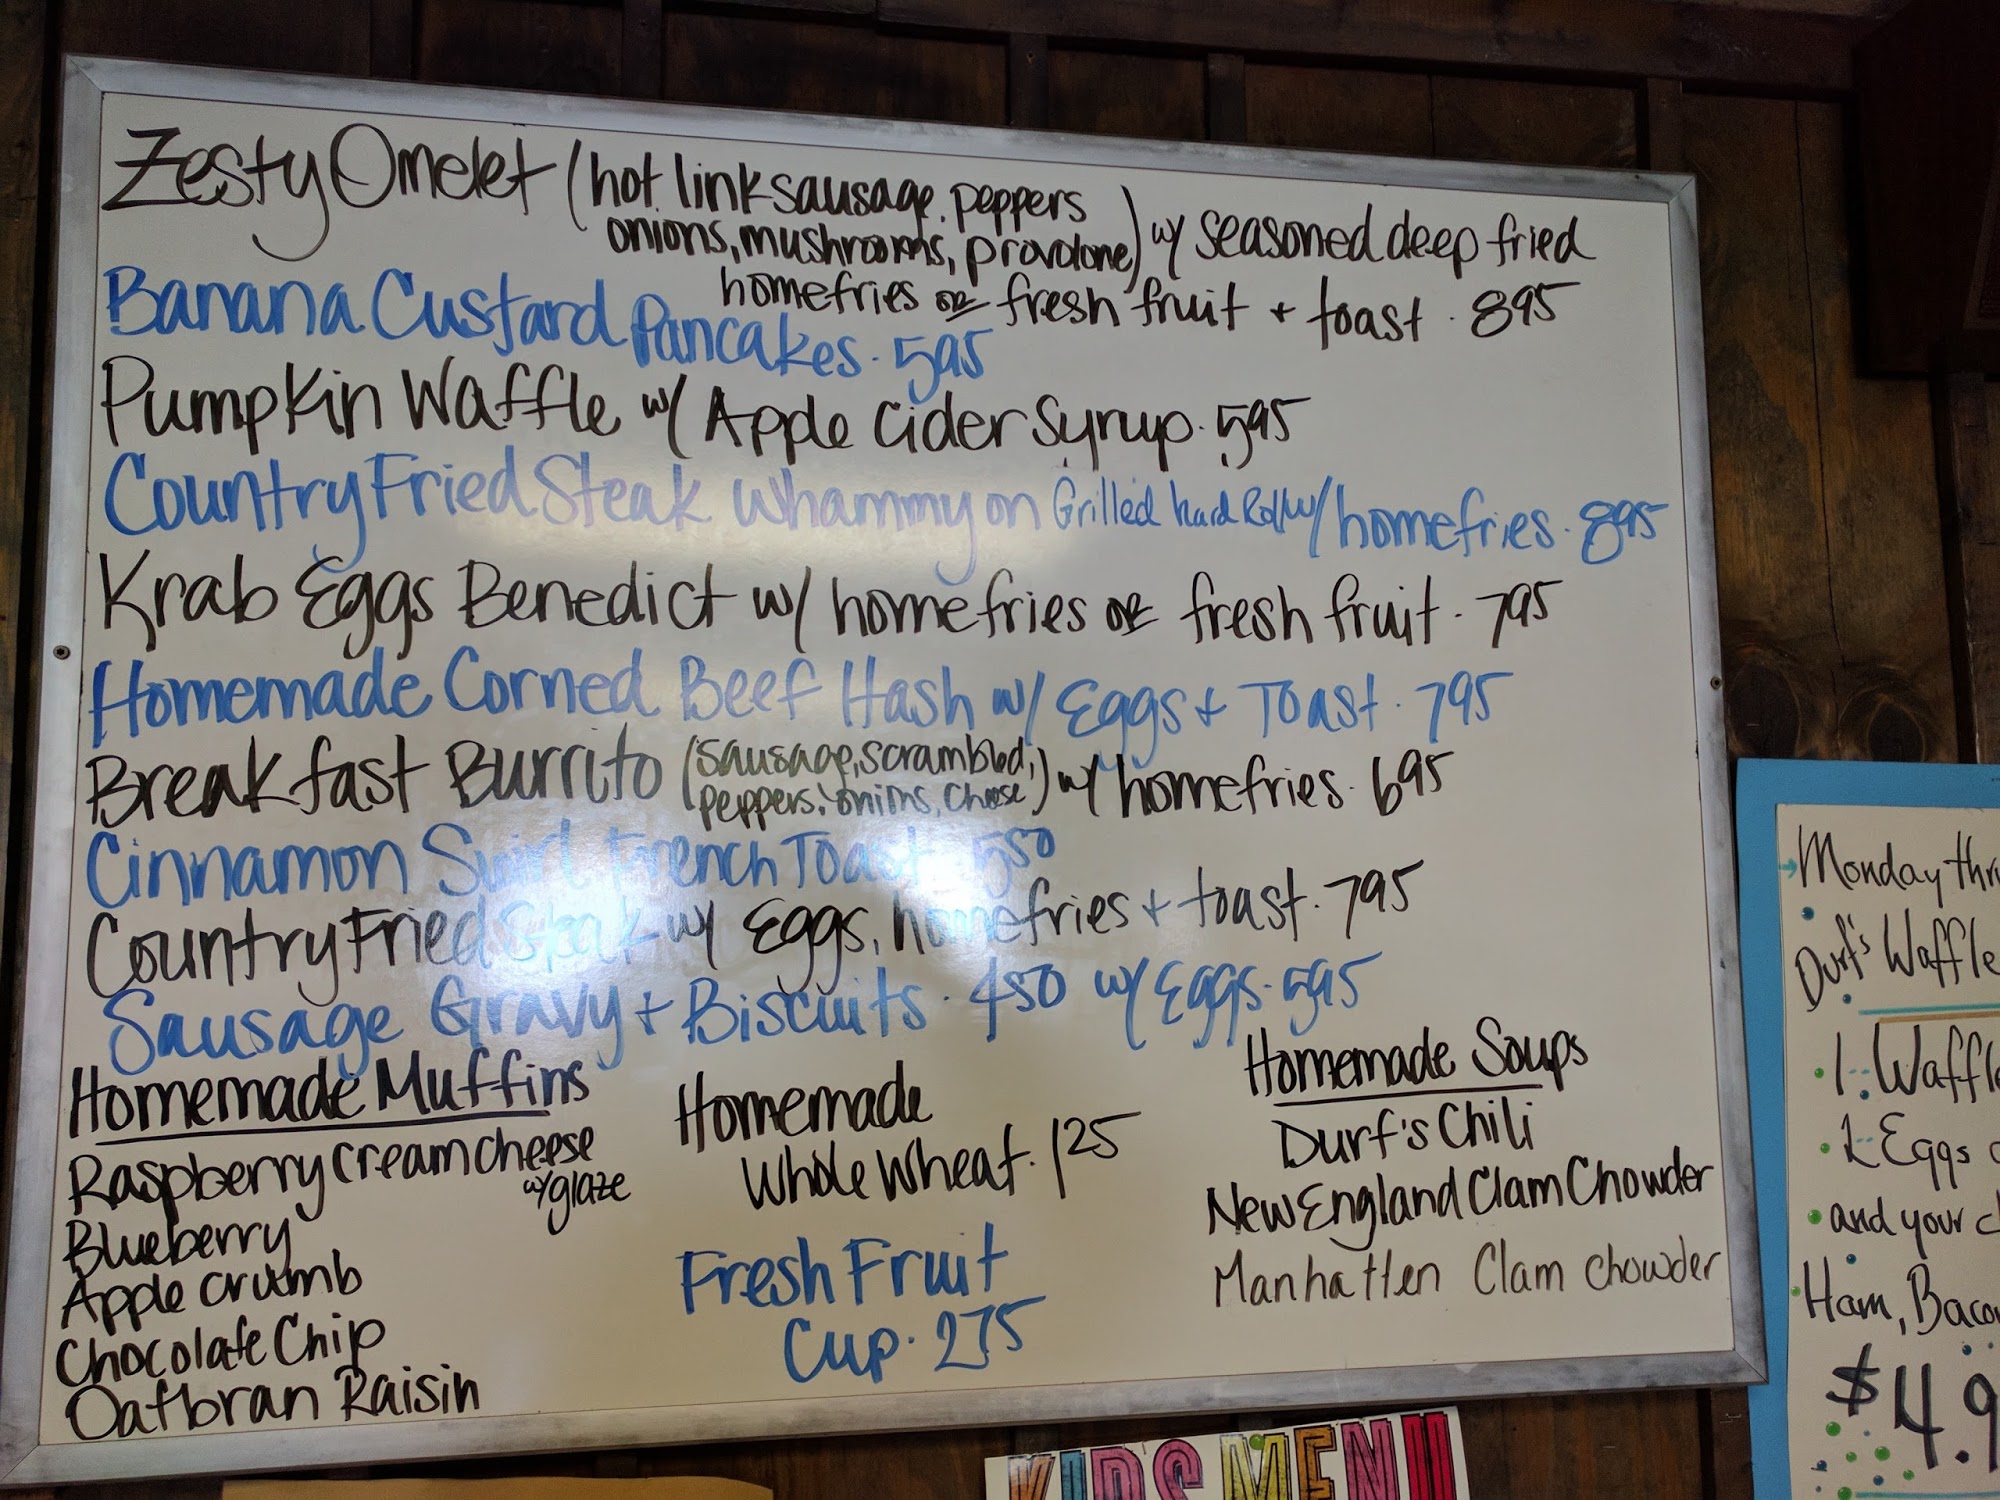 Zesty Omelet (hot link sausage, peppers
onions, mushrooms, provolone) w/ seasoned deep fried
homefries or fresh fruit + toast . 895
Banana Custard Pancakes . 595
Pumpkin Waffle w/ Apple Cider Syrup . 595
Country Fried Steak Whammy on Grilled hard Roll w/ homefries . 895
Krab Eggs Benedict w/ homefries or fresh fruit . 795
Homemade Corned Beef Hash w/ Eggs + Toast . 795
Breakfast Burrito (sausage, scrambled,
peppers, onions, cheese) w/ homefries . 695
Cinnamon Swirl French Toast . 550
Country Fried Steak w/ Eggs, homefries + toast . 795
Sausage Gravy + Biscuits . 450 w/ Eggs . 595
Homemade Muffins
Raspberry Cream cheese
w/ glaze
Blueberry
Apple crumb
Chocolate Chip
Oatbran Raisin
Homemade
Whole Wheat . 125
Fresh Fruit
Cup . 275
Homemade Soups
Durf's Chili
New England Clam Chowder
Manhatten Clam chowder
Monday thr
Durf's Waffle
1 Waffle
2 Eggs
and your c
Ham, Baco
$4.9
KIDS MENU